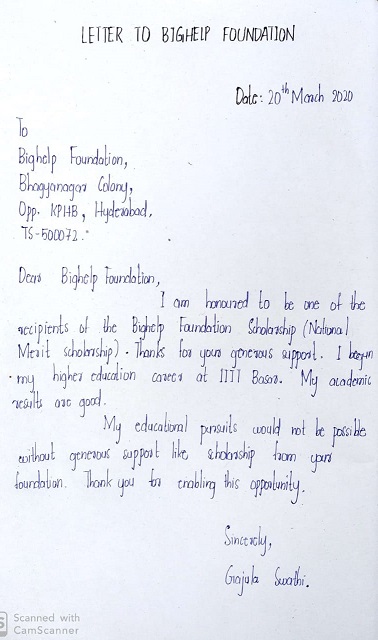 LETTER TO BIGHELP FOUNDATION
Date: 20th March 2020
To
Bighelp Foundation,
Bhagyanagar Colony,
Opp. KPHB, Hyderabad,
TS-500072.
Dear Bighelp Foundation,
I am honoured to be one of the
recipients of the Bighelp Foundation Scholarship (National
Merit scholarship). Thanks for your generous support. I began
my higher education career at IIIT Basar. My academic
results are good.
My educational pursuits would not be possible
without generous support like scholarship from your
foundation. Thank you for enabling this opportunity.
Sincerely,
Gajula Swathi.
Scanned with
CamScanner